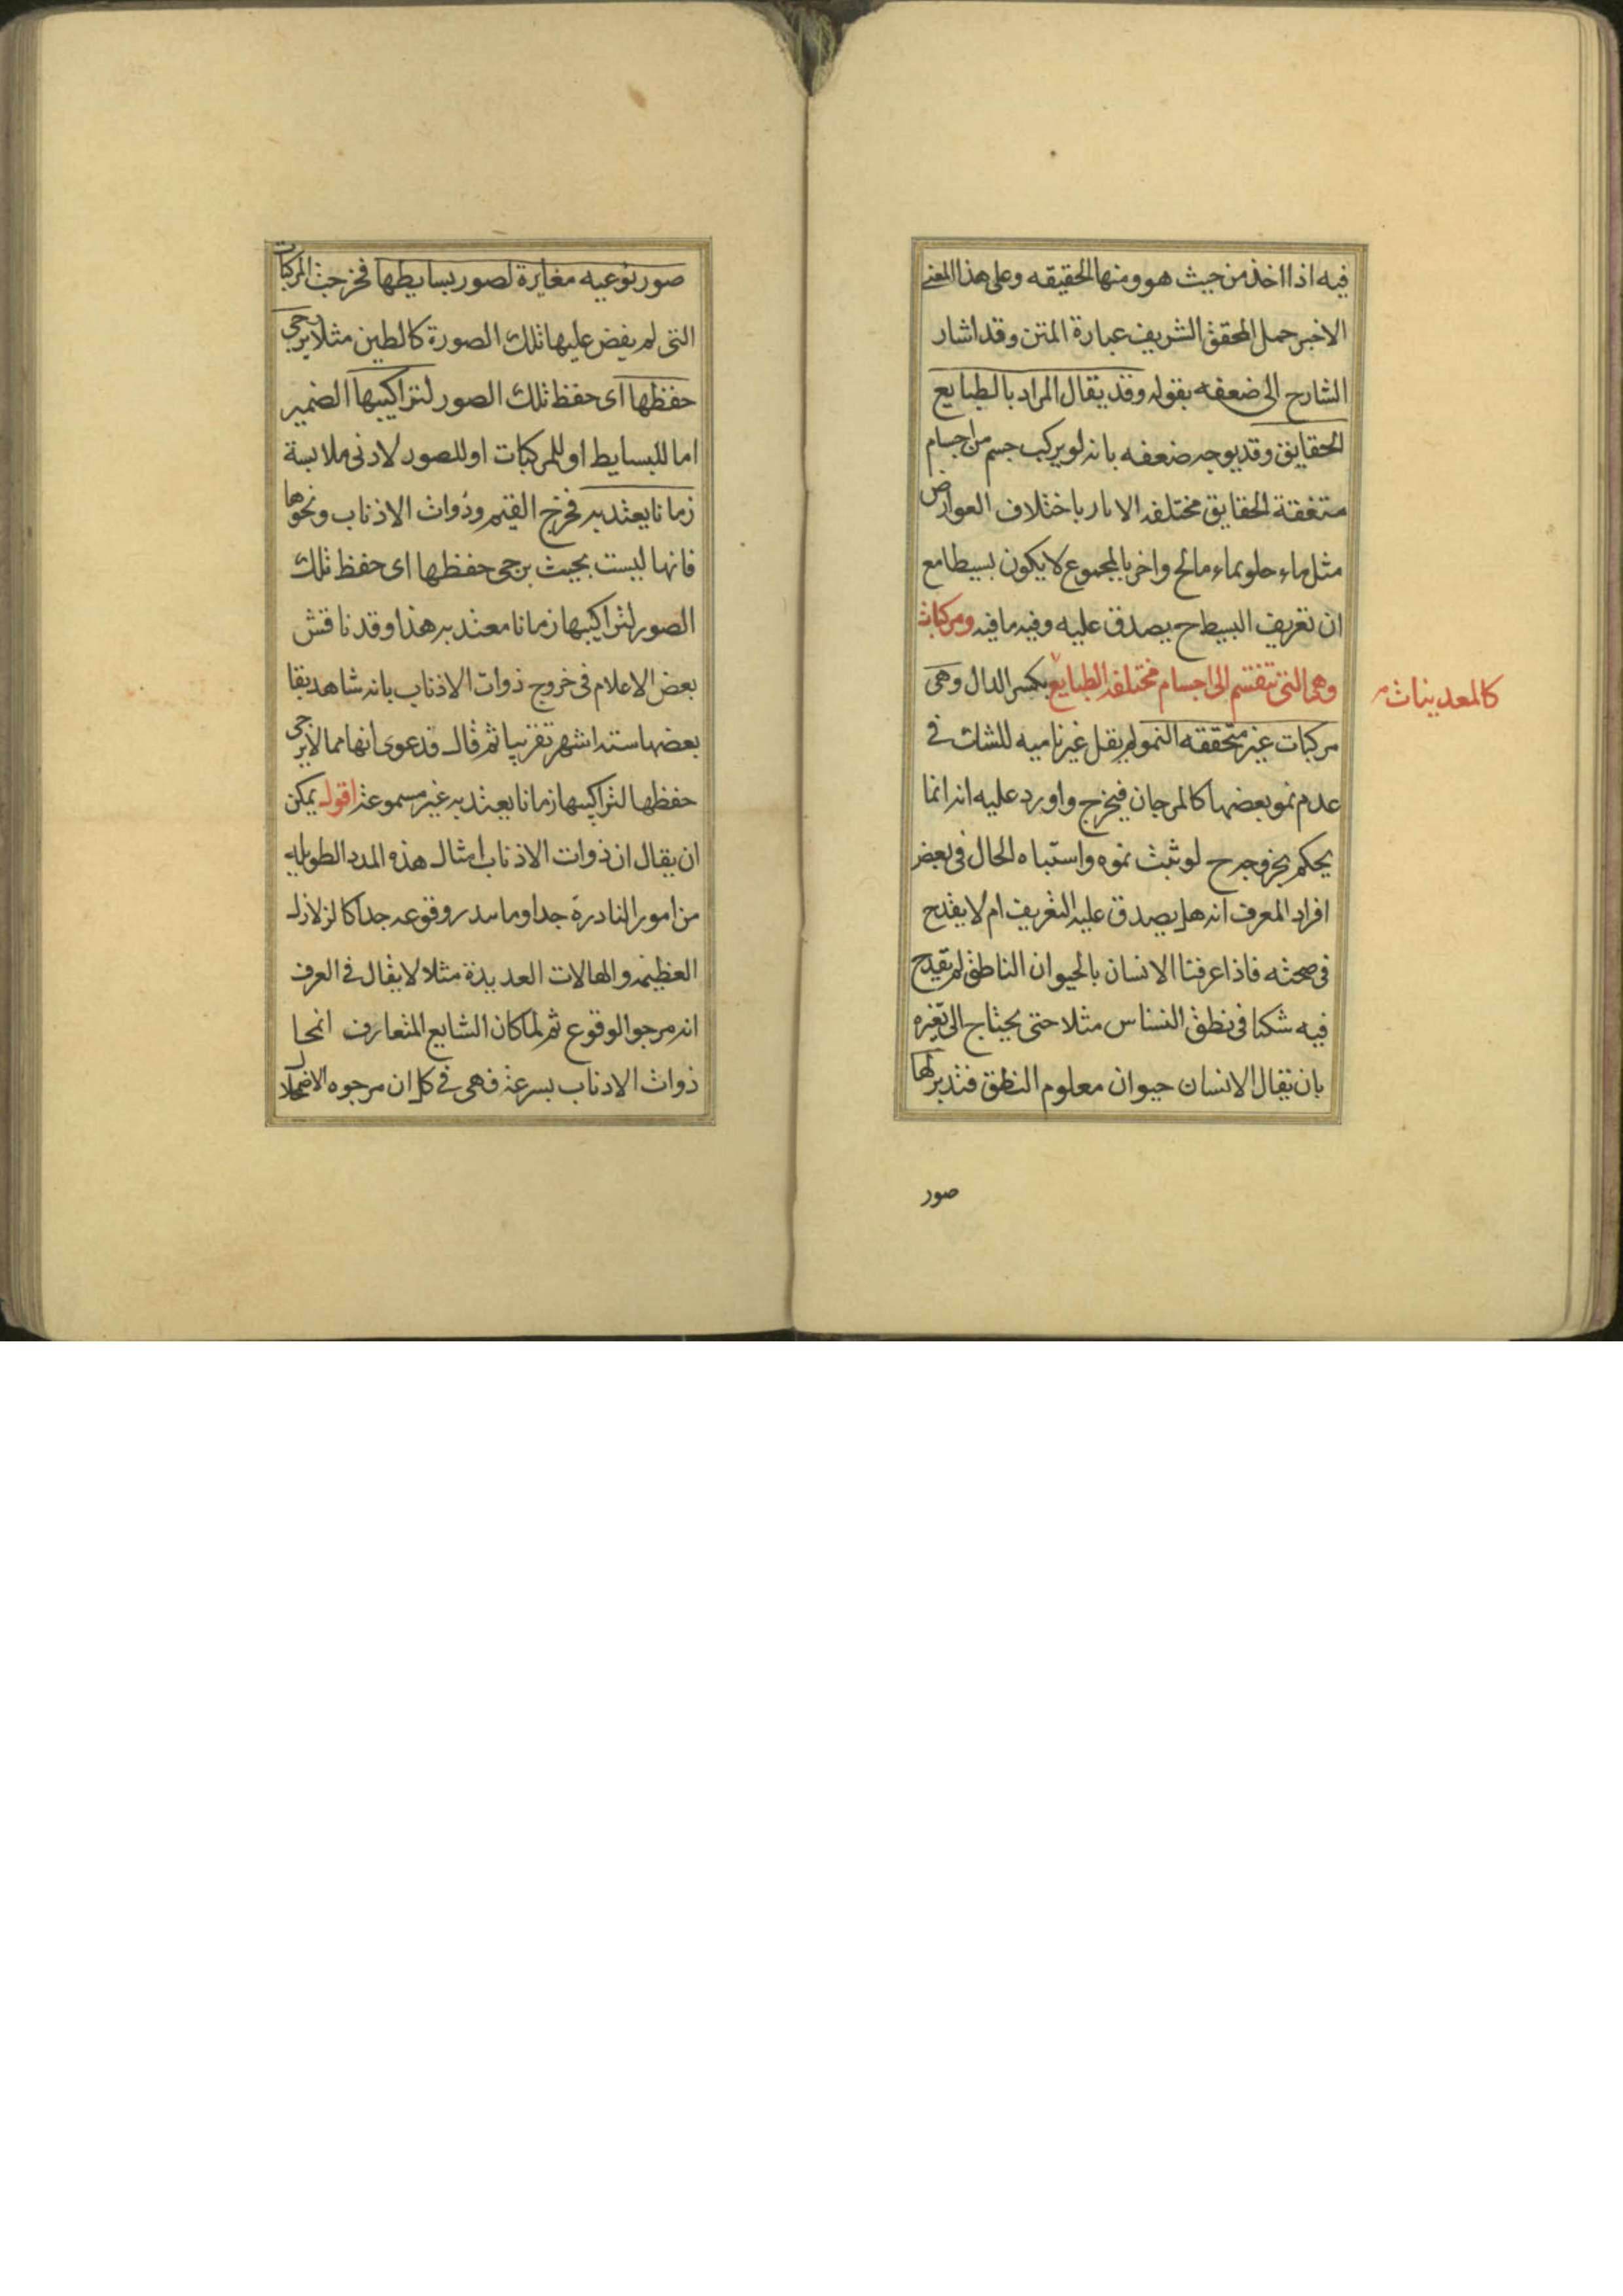 فيه اذا اخذ من حيث هو ومنها الحقيقه وعلى هذا المعنى
الاخير حمل المحقق الشريف عبارة المتن وقد اشار
الشارح الى ضعفه بقوله وقد يقال المراد بالطبايع
الحقايق وقد يوجه ضعفه بانه لو يركب جسم من اجسام
متفقة الحقايق مختلفه الاثار باختلاف العوارض
مثل ماء حلو بماء مالح واخر بالمجموع لا يكون بسيطا مع
ان تعريف البسيط ح يصدق عليه وفيه ما فيه ومركبات
وهى التى تنقسم الى اجسام مختلفه الطبايع بكسر الدال وهى
كالمعدينات
مركبات غير متحققه النمو لم يقل غير ناميه للشك فى
عدم نمو بعضها كالمرجان فيخرج واورد عليه انه انما
يحكم بخروجه ح لو ثبت نموه واشتباه الحال فى بعض
افراد المعرف انه هل يصدق عليه التعريف ام لا يقدح
فى صحته فاذا عرفنا الانسان بالحيوان الناطق لم يقدح
فيه شكنا فى نطق النسناس مثلا حتى يحتاج الى تغيره
بان يقال الانسان حيوان معلوم النطق فتدبر لها
صور
صور نوعيه مغايرة لصور بسايطها فخرجت المركبات
التى لم يفض عليها تلك الصورة كالطين مثلا يرجى
حفظها اى حفظ تلك الصور لتراكيبها الضمير
اما للبسايط او للمركبات او للصور لادنى ملابسة
زمانا يعتد به فخرج الغيم وذوات الاذناب ونحوها
فانها ليست بحيث يرجى حفظها اى حفظ تلك
الصور لتراكيبها زمانا معتد به هذا وقد ناقش
بعض الاعلام فى خروج ذوات الاذناب بانه شاهد بقا
بعضها ستة اشهر تقريبا ثم قال قدعوى انها مما لا يرجى
حفظها لتراكيبها زمانا يعتد به غير مسموعة اقول يمكن
ان يقال ان ذوات الاذناب امثال هذه المدد الطويله
من امور النادرة جدا وما يندر وقوعه جدا كالزلازل
العظيمه والهالات العديدة مثلا لا يقال فى العرف
انه مرجو الوقوع ثم لما كان الشايع المتعارف انمحا
ذوات الاذناب بسرعة فهى فى كل ان مرجوه الاضمحلال